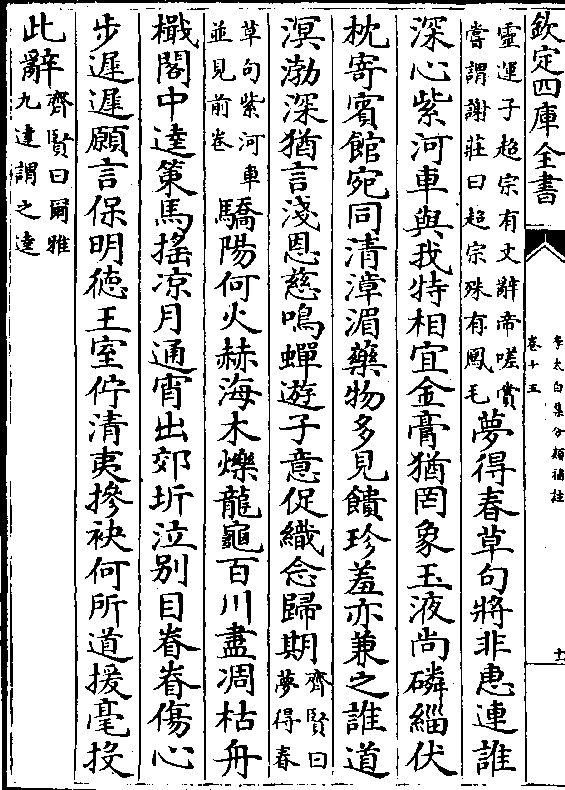 欽定四庫全書
李太白集分類補註
卷十五
十一
靈運子超宗有文辭帝嗟賞
嘗謂謝莊曰超宗殊有鳳毛
夢得春草句將非惠連誰
深心紫河車與我特相宜金膏猶罔象玉液尚磷緇伏
枕寄賓館宛同清漳湄藥物多見饋珍羞亦兼之誰道
溟渤深猶言淺恩慈鳴蟬遊子意促織念歸期
齊賢曰
夢得春
草句紫河車
並見前卷
驕陽何火赫海木爍龍龜百川盡凋枯舟
檝閣中逵策馬搖凉月通宵出郊圻泣别目眷眷傷心
步遲遲願言保明徳王室佇清夷摻袂何所道援毫投
此辭
齊賢曰爾雅
九達謂之逵